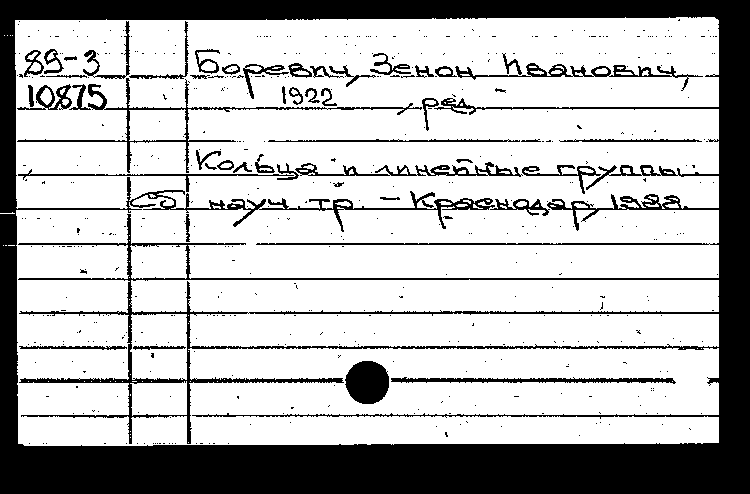 89-3 Боревич, Зенон Иванович,
10875 1922 , ред.
Кольца и линейные группы:
Сб науч. тр. - Краснодар, 1988.